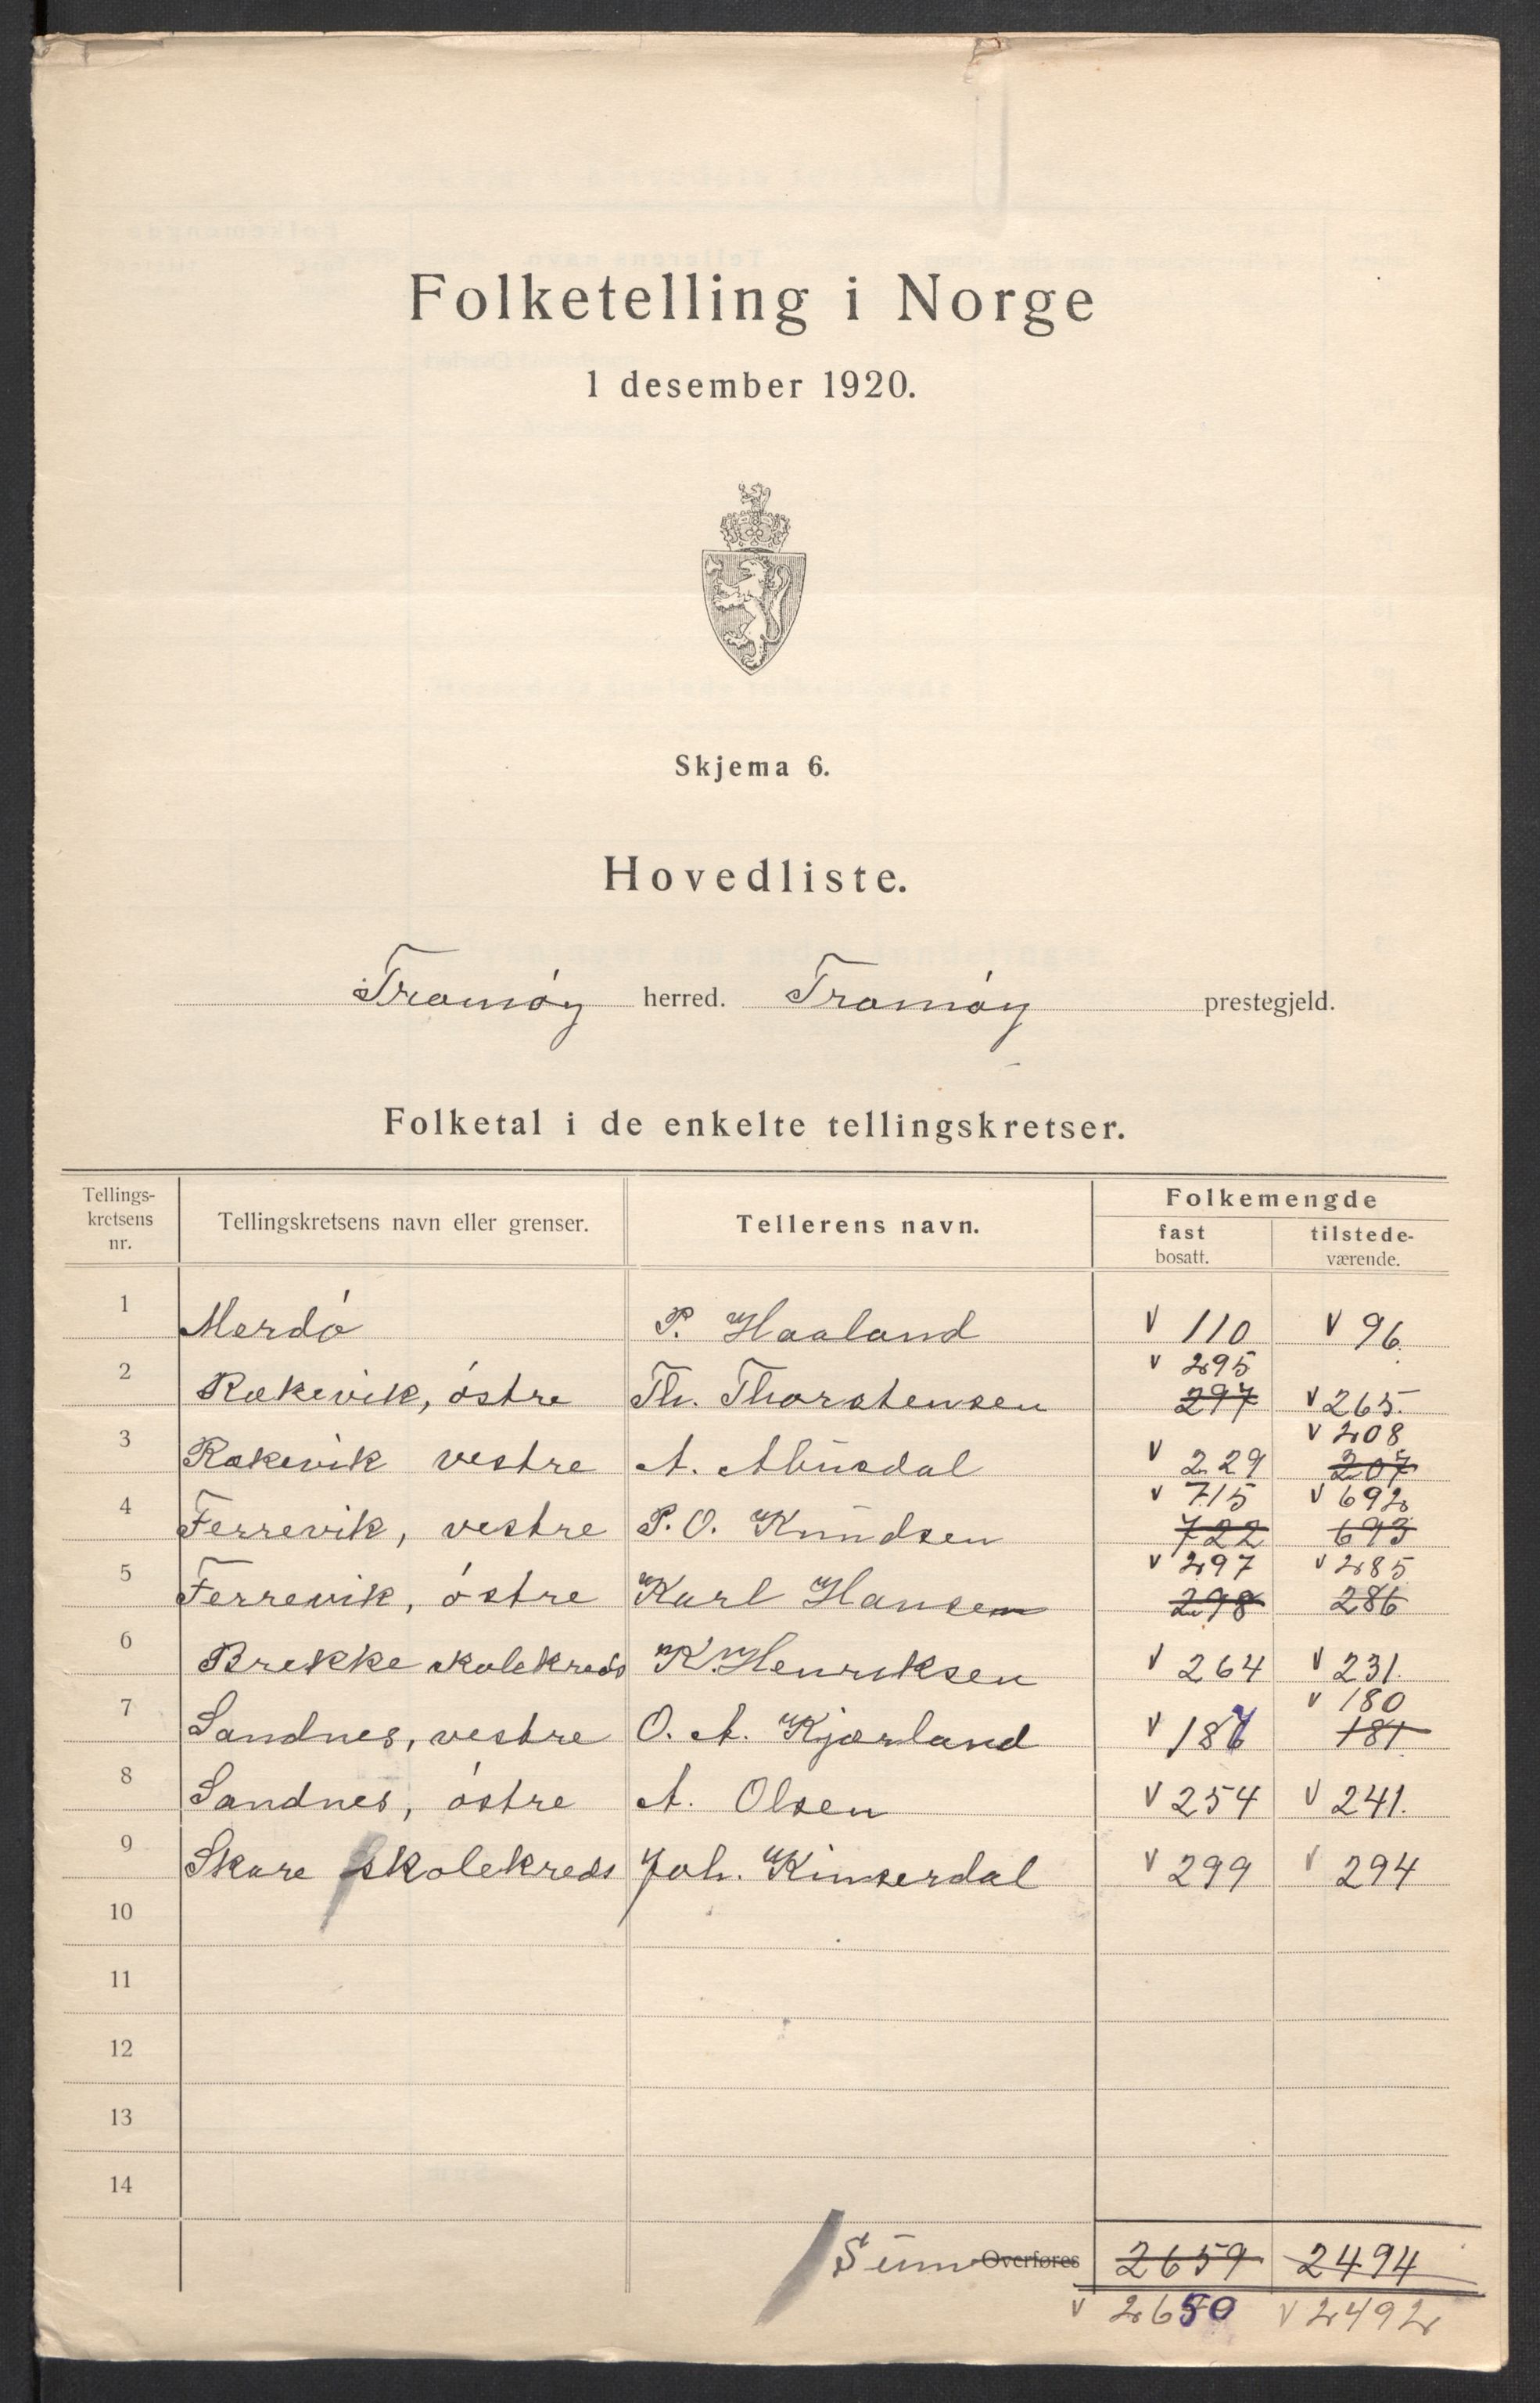 Folketelling i Norge
1 desember 1920.
Skjema 6.
Hovedliste.
Tromöy herred. Tromöy prestegjeld.
Folketal i de enkelte tellingskretser.
Tellings-kretsens nr. Tellingskretsens navn eller grenser. Tellerens navn. Folkemengde fast bosatt. tilstede-værende.
1 Merdö P. Haaland v 110 v 96.
v 295
2 Rækevik, östre Th. Thorstensen 297 v 265.
v 208
3 Rækevik vestre A. Alvusdal v 229 207
v 715 v 692
4 Færrevik, vestre P. O. Knudsen 722 693
v 297 v 285
5 Færrevik, östre Karl Hansen 298 286
6 Brekke skolekreds K. Henriksen v 264 v 231.
v 180
7 Sandnes, vestre O. A. Kjærland v 187 181
8 Sandnes, östre A. Olsen v 254 v 241.
9 Skare skolekreds Joh. Kinserdal v 299 v 294
10
11
12
13
14
Sum Overføres 2659 2494
v 2650 v 2492